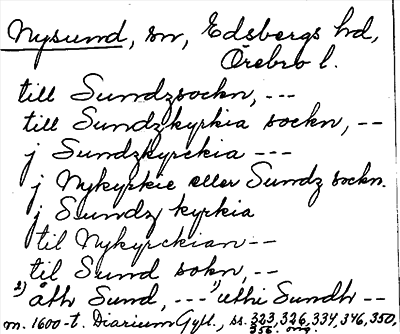 Nysund, sn, Edsbergs hd,
Örebro l.
till Sundzsockn, ---
till Sundzkyrkia sockn, --
j Sundzkyrckia ---
j Nykyrkie eller Sundz sockn.
j Sundz kyrkia
til Nykyrckian --
til Sund sokn, --
2) åth Sund, --- 1) uthi Sundh --
m. 1600-t. Diarium Gyll., ss. 323, 326, 334, 346, 350,
356. orig.